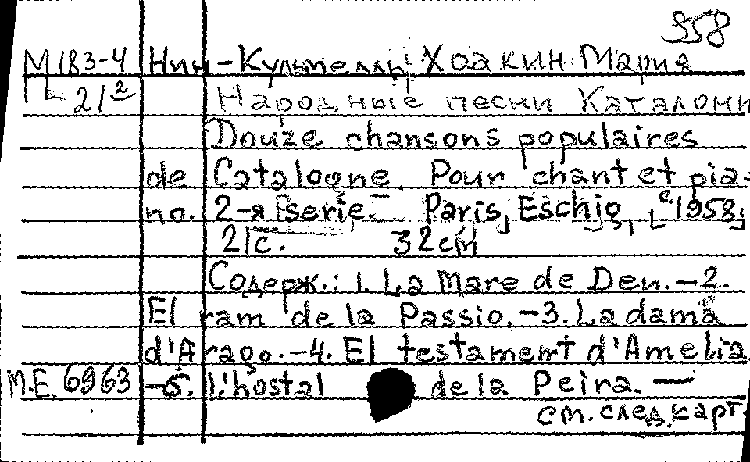 958
М 183-4 Нин-Кульмеллы Хоакин Мария
21² Народные песни Каталони
Douze chansons populaires
de Catalogne. Pour chant et pia-
no. 2-я serie. Paris, Eschig, [c 1958]
21с. 32cm
Содерж.: 1. La Mare de Deu. — 2.
El ram de la Passio. — 3. La dama
d'Arago. — 4. El testament d'Amelia
М.Е. 6963 — 5. L'hostal de la Peira. —
см. след. карт.